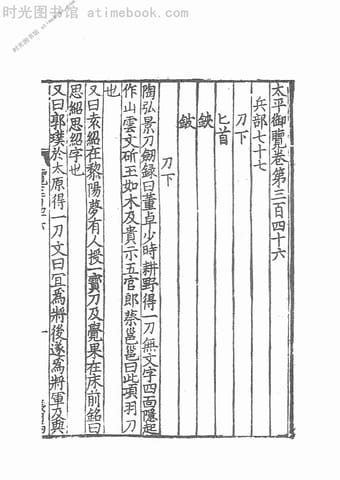 时光图书馆 atimebook.com
时光图书馆 atimebook.com
太平御覽卷第三百四十六
兵部七十七
刀下
匕首
鋏
鈹
刀下
陶弘景刀劒録曰董卓少時耕野得一刀無文字四面隱起
作山雲文斫玉如木及貴示五官郎蔡邕邕曰此項羽刀
也
又曰袁紹在黎陽夢有人授一寳刀及覺果在床前銘曰
思紹思紹字也
又曰郭璞於太原得一刀文曰宜爲將後遂爲將軍及與